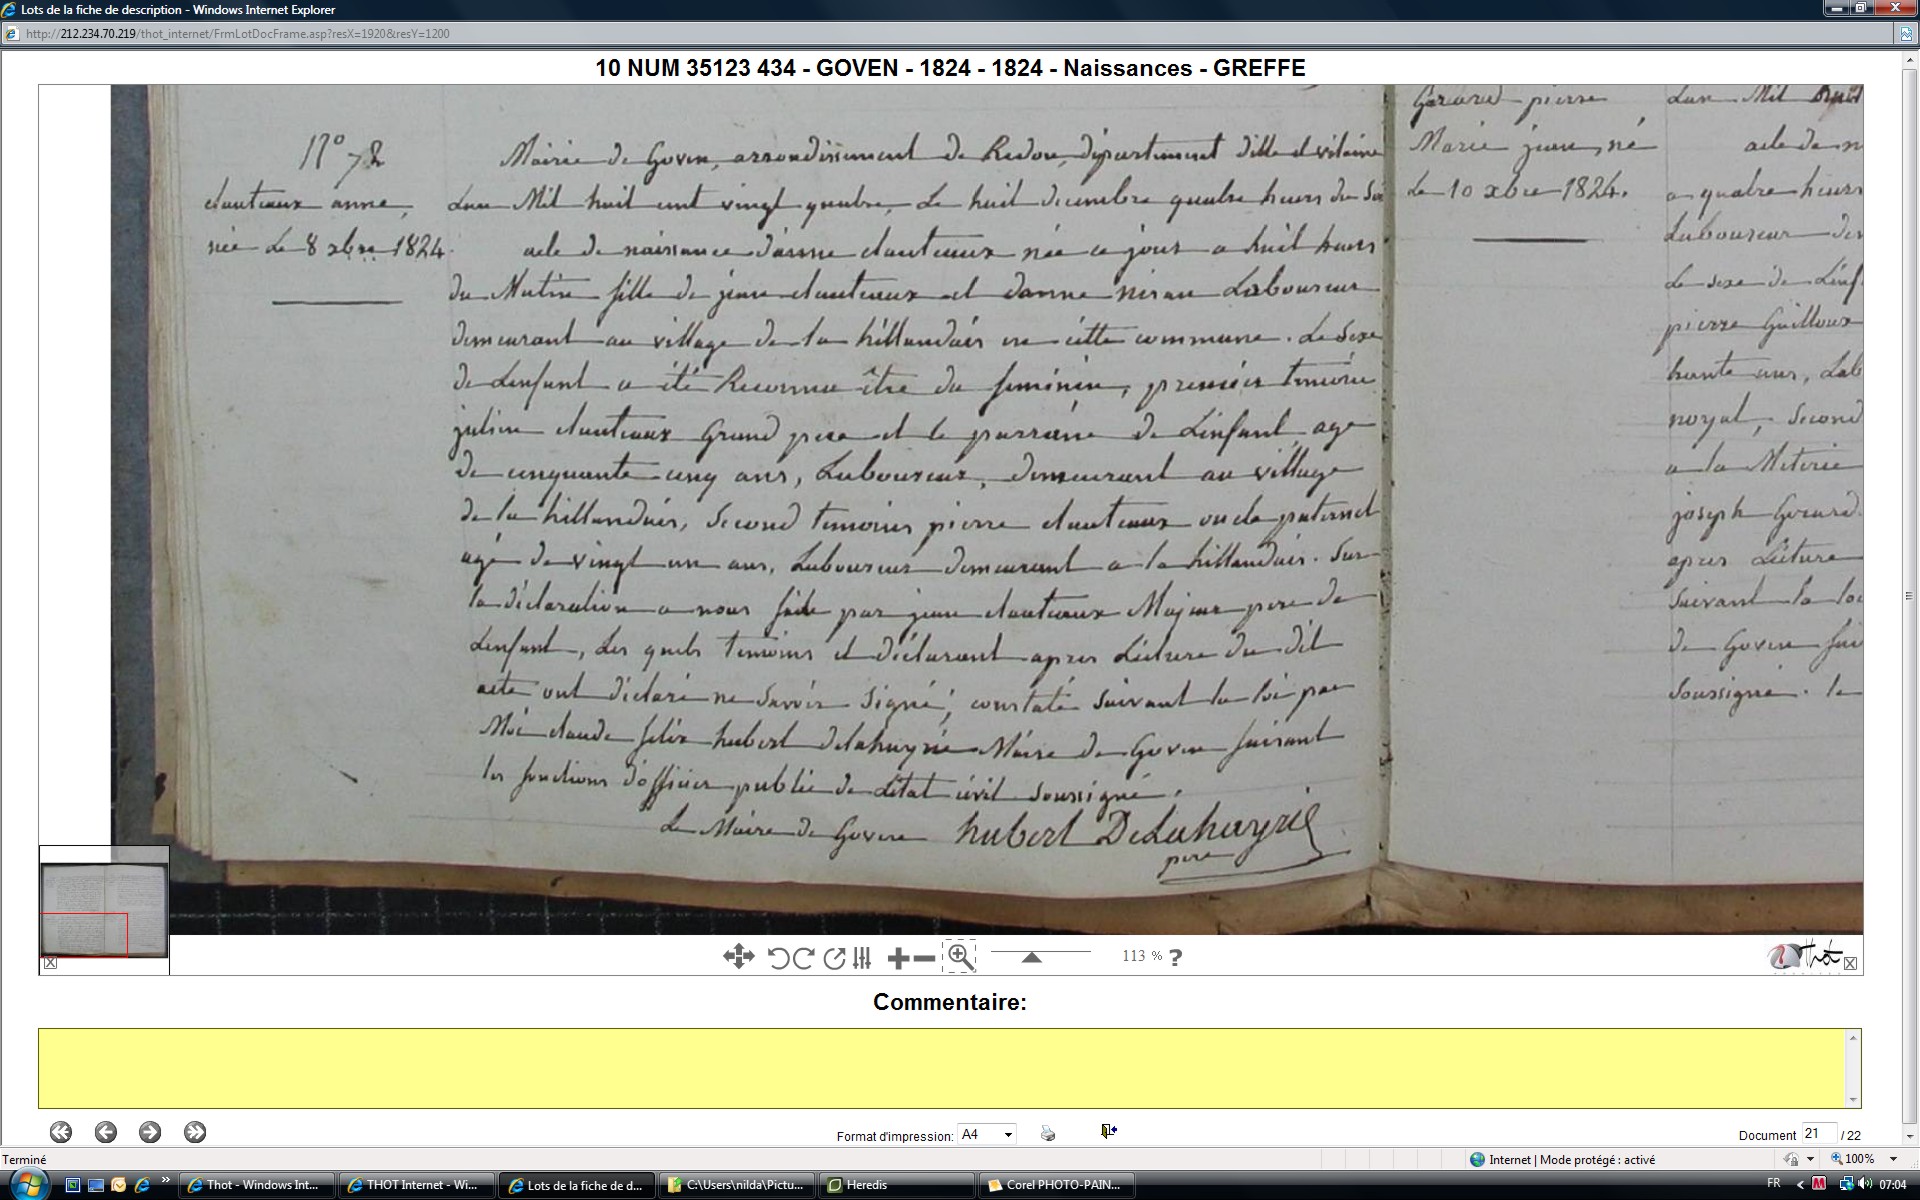 Lots de la fiche de description - Windows Internet Explorer
http://212.234.70.219/thot_internet/FrmLotDocFrame.asp?resX=1920&resY=1200
10 NUM 35123 434 - GOVEN - 1824 - 1824 - Naissances - GREFFE
N° 72
dauteaux anne,
née Le 8 xbre 1824.
Mairie de Goven, arrondissement de Redon, département dille et vilaine
Lan Mil huit cent vingt quatre, Le huit decembre quatre heures du soir
acte de naissance danne dauteaux née ce jour a huit heures
du Matin fille de jean dauteaux et danne Laboureur
demeurant au village de la hillandais en cette commune. Le sexe
de Lenfant a été Reconnu être du feminin, premier temoin
julien dauteaux Grand pere et le parrain de Lenfant age
de cinquante cinq ans, Laboureur, demeurant au village
de la hillandais, Second temoins pierre dauteaux oncle paternel
agé de vingt un ans, Laboureur demeurant a la hillandais. Sur
la déclaration a nous faite par jean dauteaux Majeur pere de
Lenfant, Les quels temoins et déclarant apres Lecture du dit
acte ont déclaré ne Savoir Signé, constaté suivant la loi par
Moi claude felix hubert delahayrie Maire de Goven faisant
les fonctions dofficier public de Létat civil soussigné.
Le Maire de Goven hubert DeLahayrie
pere
Gerard pierre
Marie jean, né
Le 10 xbre 1824.
Lan Mil huit
acte de n
a quatre heures
Laboureur
Le sexe de Lenf
pierre Guilloux
trente ans, Lab
noyal, Second
a la Meterie
joseph Gerard.
apres Lecture
Suivant la loi
de Goven fai
soussigné. le
113 % ?
Thot
Commentaire:
Format d'impression: A4
Document 21 / 22
Terminé
Internet | Mode protégé : activé
100%
Thot - Windows Int...
THOT Internet - Wi...
Lots de la fiche de d...
C:\Users\nilda\Pictu...
Heredis
Corel PHOTO-PAIN...
FR
07:04